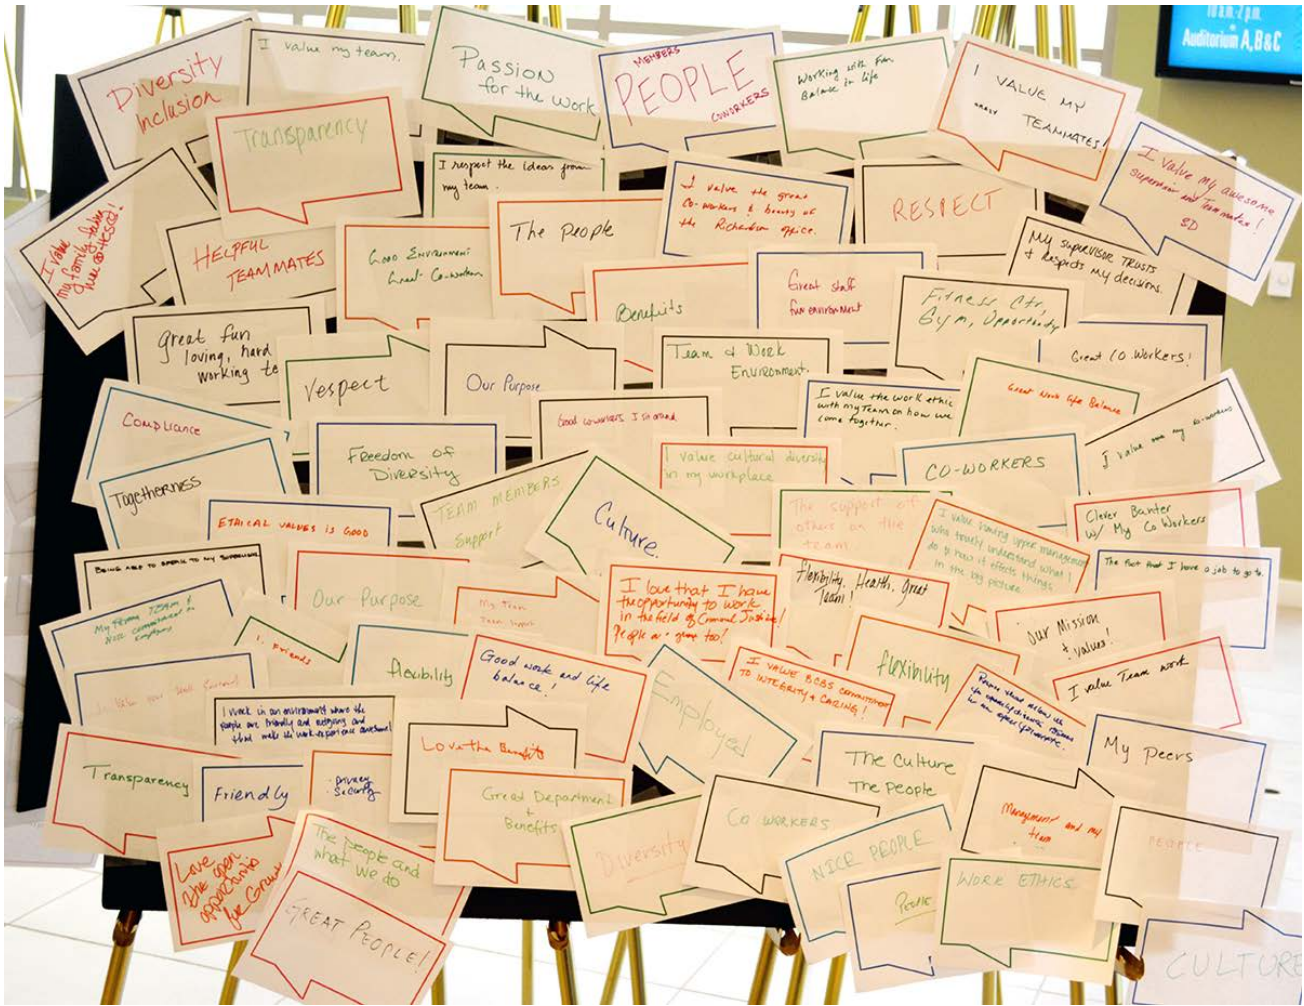 10 a.m.-2 p.m.
Auditorium A, B & C
Diversity
Inclusion
I value my team.
Passion
for the work
MEMBERS
PEOPLE
COWORKERS
Working with Fun
Balance in life
I VALUE MY
TEAMMATES!
Transparency
I respect the ideas from
my team.
I value the great
Co-workers & beauty of
the Richardson office.
RESPECT
I value my awesome
supervisor and Teammates!
SD
I value
my family
HELPFUL
TEAMMATES
Good Environment
Great Co-workers
The people
My SUPERVISOR TRUSTS
& respects my decisions.
Benefits
Great staff
fun environment
Fitness Ctr,
Gym, Opportunity
Great fun
loving, hard
working te
respect
Our Purpose
Team & Work
Environment.
Great Co-Workers!
Compliance
Good coworkers I sit around
I value the work ethic
with my Team on how we
come together.
Great Work Life Balance
I value my co-workers
Togetherness
Freedom of
Diversity
TEAM MEMBERS
Support
I value cultural diversity
in my workplace
CO-WORKERS
ETHICAL VALUES IS GOOD
Culture
The support of
others on the
team
I value having upper management
who truly understand what I
do & how it effects things
in the big picture
Clever Banter
w/ My Co Workers
BEING ABLE TO SPEAK TO MY SUPERVISOR
Our Purpose
I love that I have
the opportunity to work
in the field of Criminal Justice!
People are great too!
flexibility, Health, Great
Team!
The fact that I have a job to go to.
My Team
Team Support
Our Mission
& values!
Friends
flexibility
Good work and life
balance!
I VALUE BCBS commitment
TO INTEGRITY & CARING!
flexibility
I value Team work
I work in an environment where the
people are friendly and outgoing and
that make the work experience awesome!
Employed
Love the Benefits
The Culture
The People
My peers
Transparency
Friendly
Privacy
Security
Great Department
&
Benefits
CO WORKERS
Management and my
team
PEOPLE
Love
the open
opportunities
for Growth
The people and
what we do
Diversity
NICE PEOPLE
WORK ETHICS
GREAT PEOPLE!
People
CULTURE